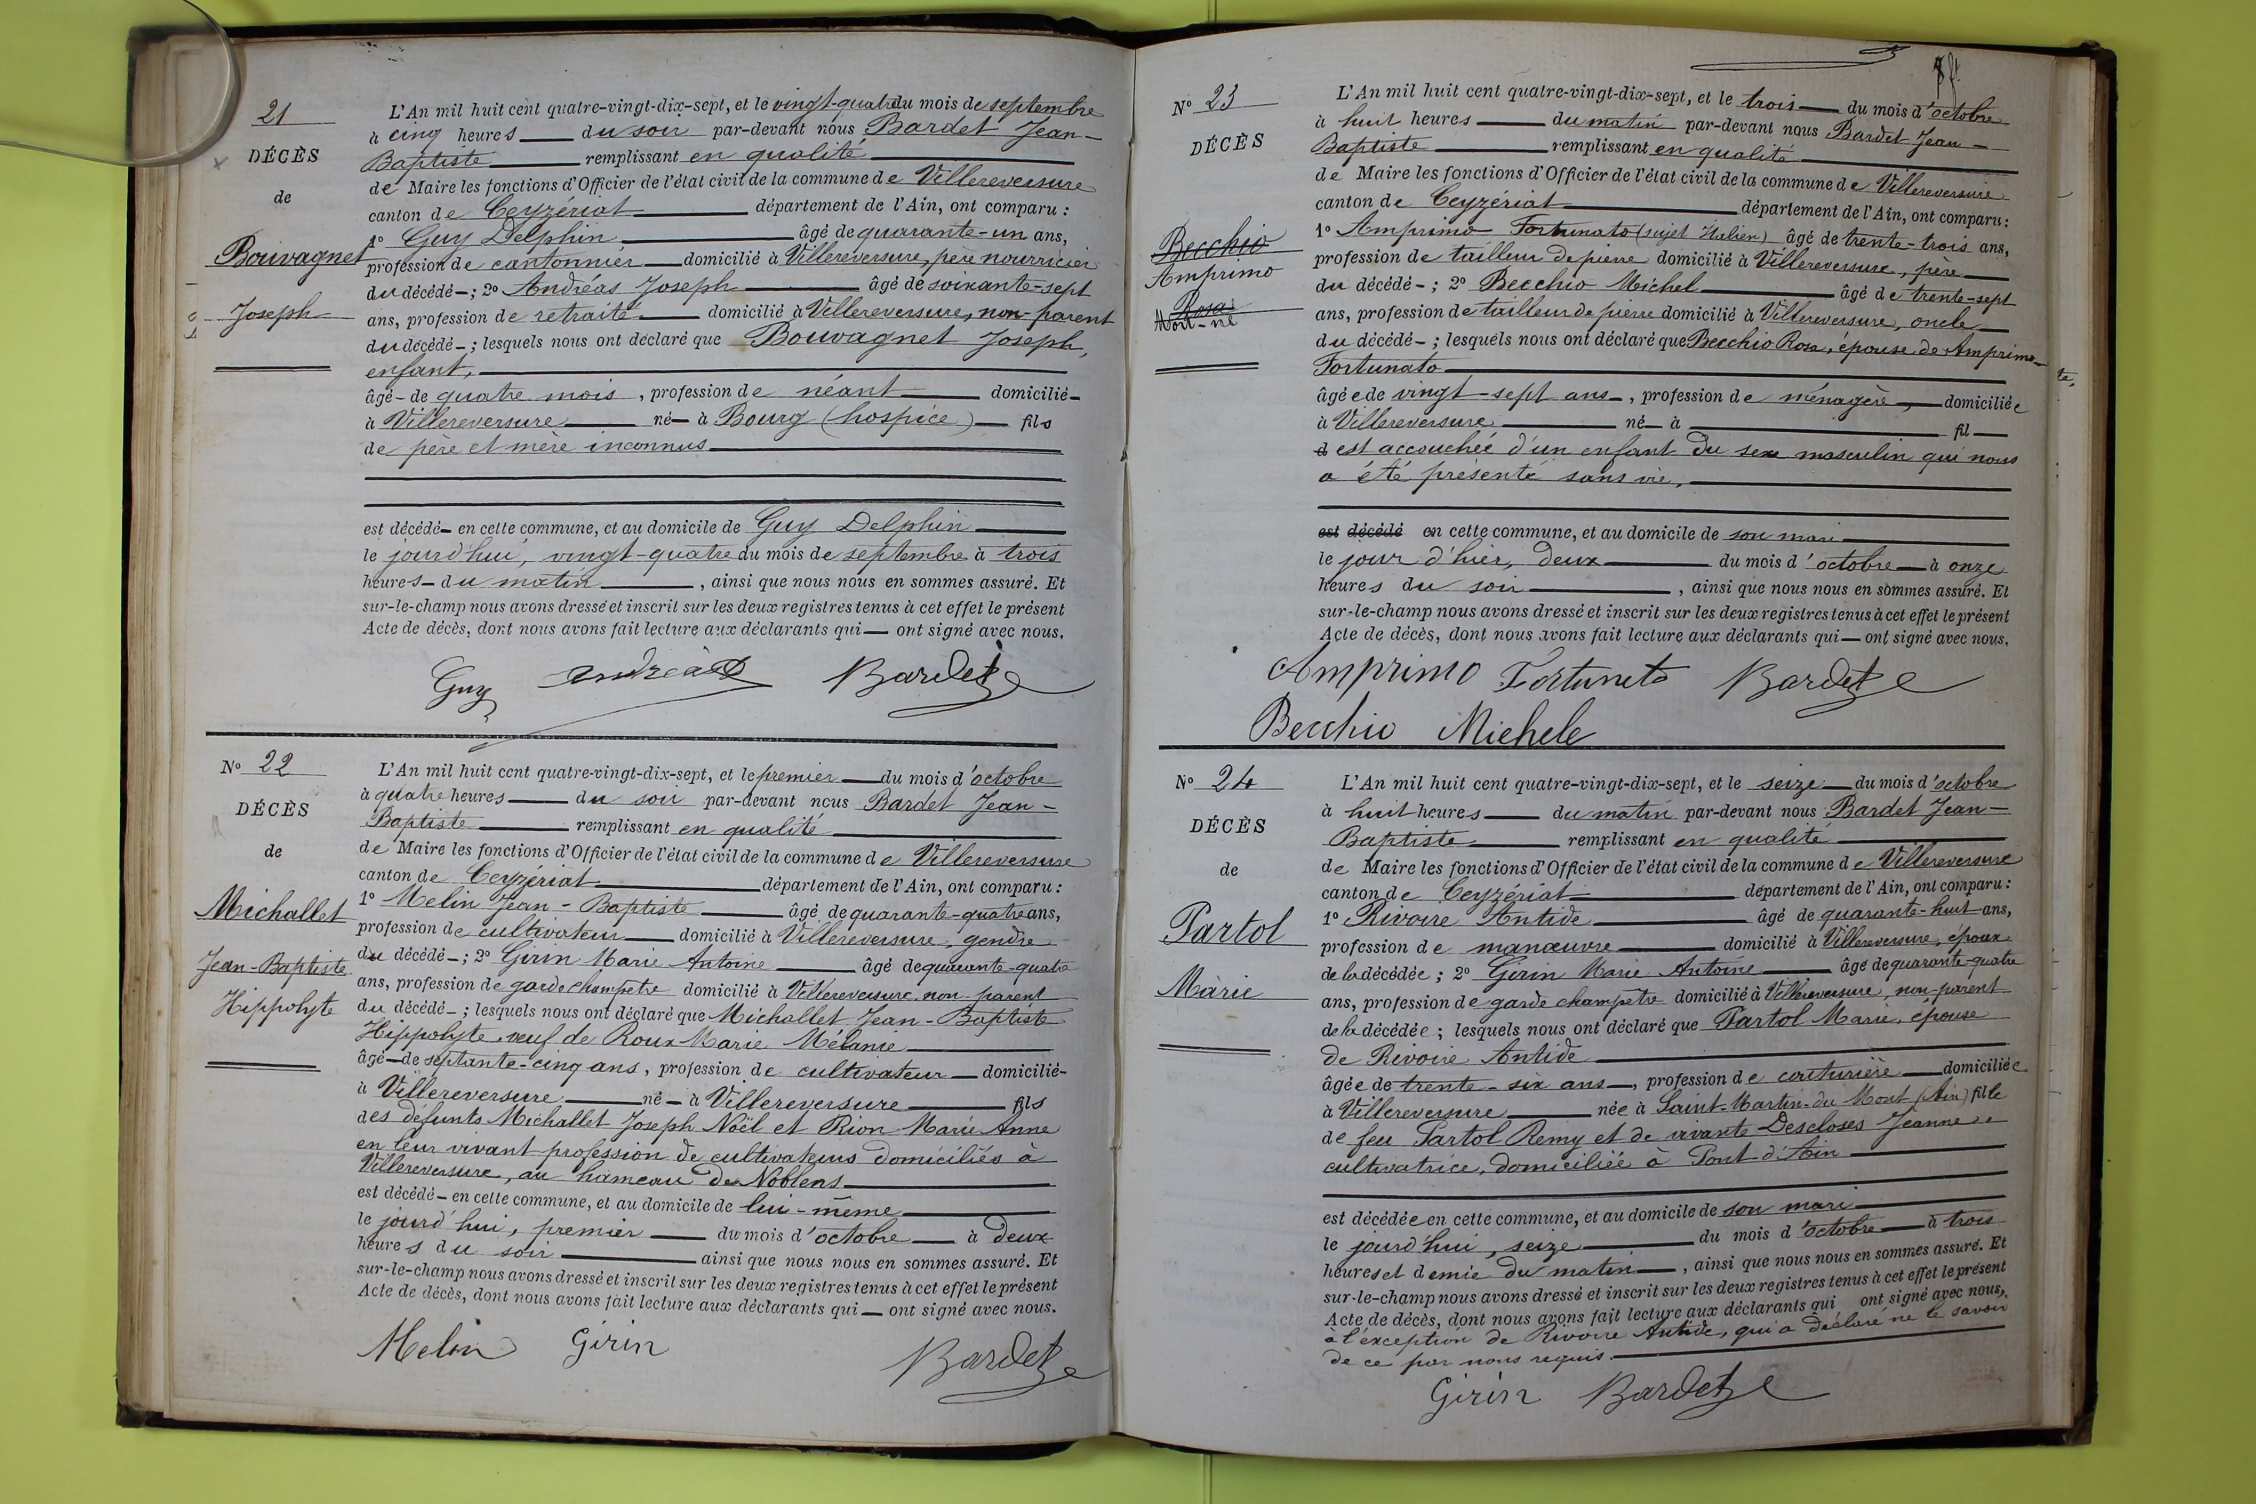 21
DÉCÈS
de
Bouvagnet
Joseph
L'An mil huit cent quatre-vingt-dix-sept, et le vingt-quatre du mois de septembre
à cinq heures du soir par-devant nous Bardet Jean-
Baptiste remplissant en qualité
de Maire les fonctions d'Officier de l'état civil de la commune de Villereversure
canton de Ceyzériat département de l'Ain, ont comparu :
1º Guy Delphin âgé de quarante-un ans,
profession de cantonnier domicilié à Villereversure, père nourricier
du décédé ; 2º Andréas Joseph âgé de soixante-sept
ans, profession de retraité domicilié à Villereversure, non-parent
du décédé ; lesquels nous ont déclaré que Bouvagnet Joseph,
enfant,
âgé de quatre mois, profession de néant domicilié
à Villereversure né à Bourg (hospice) fils
de père et mère inconnus
est décédé en cette commune, et au domicile de Guy Delphin
le jourd'hui, vingt-quatre du mois de septembre à trois
heures du matin, ainsi que nous nous en sommes assuré. Et
sur-le-champ nous avons dressé et inscrit sur les deux registres tenus à cet effet le présent
Acte de décès, dont nous avons fait lecture aux déclarants qui ont signé avec nous.
Guy Andréas Bardet
Nº 22
DÉCÈS
de
Michallet
Jean-Baptiste
Hippolyte
L'An mil huit cent quatre-vingt-dix-sept, et le premier du mois d'octobre
à quatre heures du soir par-devant nous Bardet Jean-
Baptiste remplissant en qualité
de Maire les fonctions d'Officier de l'état civil de la commune de Villereversure
canton de Ceyzériat département de l'Ain, ont comparu :
1º Melin Jean-Baptiste âgé de quarante-quatre ans,
profession de cultivateur domicilié à Villereversure, gendre
du décédé ; 2º Girin Marie Antoine âgé de quarante-quatre
ans, profession de garde champetre domicilié à Villereversure, non-parent
du décédé ; lesquels nous ont déclaré que Michallet Jean-Baptiste
Hippolyte, veuf de Roux Marie Mélanie
âgé de septante-cinq ans, profession de cultivateur domicilié
à Villereversure né à Villereversure fils
des défunts Michallet Joseph Noël et Rion Marie Anne
en leur vivant profession de cultivateurs domiciliés à
Villereversure, au hameau de Noblens
est décédé en cette commune, et au domicile de lui-même
le jourd'hui, premier du mois d'octobre à deux
heures du soir ainsi que nous nous en sommes assuré. Et
sur-le-champ nous avons dressé et inscrit sur les deux registres tenus à cet effet le présent
Acte de décès, dont nous avons fait lecture aux déclarants qui ont signé avec nous.
Melin Girin Bardet
Nº 23
DÉCÈS
Becchio
Amprimo
Rosa
Mort-né
L'An mil huit cent quatre-vingt-dix-sept, et le trois du mois d'octobre
à huit heures du matin par-devant nous Bardet Jean-
Baptiste remplissant en qualité
de Maire les fonctions d'Officier de l'état civil de la commune de Villereversure
canton de Ceyzériat département de l'Ain, ont comparu :
1º Amprimo Fortunato (sujet Italien) âgé de trente-trois ans,
profession de tailleur de pierre domicilié à Villereversure, père
du décédé ; 2º Becchio Michel âgé de trente-sept
ans, profession de tailleur de pierre domicilié à Villereversure, oncle
du décédé ; lesquels nous ont déclaré que Becchio Rosa, épouse de Amprimo
Fortunato
âgée de vingt-sept ans, profession de ménagère, domiciliée
à Villereversure né à fil
d est accouchée d'un enfant du sexe masculin qui nous
a été présenté sans vie,
est décédé en cette commune, et au domicile de son mari
le jour d'hier, deux du mois d'octobre à onze
heures du soir, ainsi que nous nous en sommes assuré. Et
sur-le-champ nous avons dressé et inscrit sur les deux registres tenus à cet effet le présent
Acte de décès, dont nous avons fait lecture aux déclarants qui ont signé avec nous.
Amprimo Fortunato Bardet
Becchio Michele
Nº 24
DÉCÈS
de
Partol
Marie
L'An mil huit cent quatre-vingt-dix-sept, et le seize du mois d'octobre
à huit heures du matin par-devant nous Bardet Jean-
Baptiste remplissant en qualité
de Maire les fonctions d'Officier de l'état civil de la commune de Villereversure
canton de Ceyzériat département de l'Ain, ont comparu :
1º Rivoire Antide âgé de quarante-huit ans,
profession de manœuvre domicilié à Villereversure, époux
de la décédée ; 2º Girin Marie Antoine âgé de quarante-quatre
ans, profession de garde champêtre domicilié à Villereversure, non-parent
de la décédée ; lesquels nous ont déclaré que Partol Marie, épouse
de Rivoire Antide
âgée de trente-six ans, profession de couturière domiciliée
à Villereversure née à Saint-Martin-du Mont (Ain) fille
de feu Partol Remy et de vivante Descloses Jeanne
cultivatrice, domiciliée à Pont d'Ain
est décédée en cette commune, et au domicile de son mari
le jourd'hui, seize du mois d'octobre à trois
heures et demie du matin, ainsi que nous nous en sommes assuré. Et
sur-le-champ nous avons dressé et inscrit sur les deux registres tenus à cet effet le présent
Acte de décès, dont nous avons fait lecture aux déclarants qui ont signé avec nous,
à l'exception de Rivoire Antide, qui a déclaré ne le savoir
de ce par nous requis.
Girin Bardet